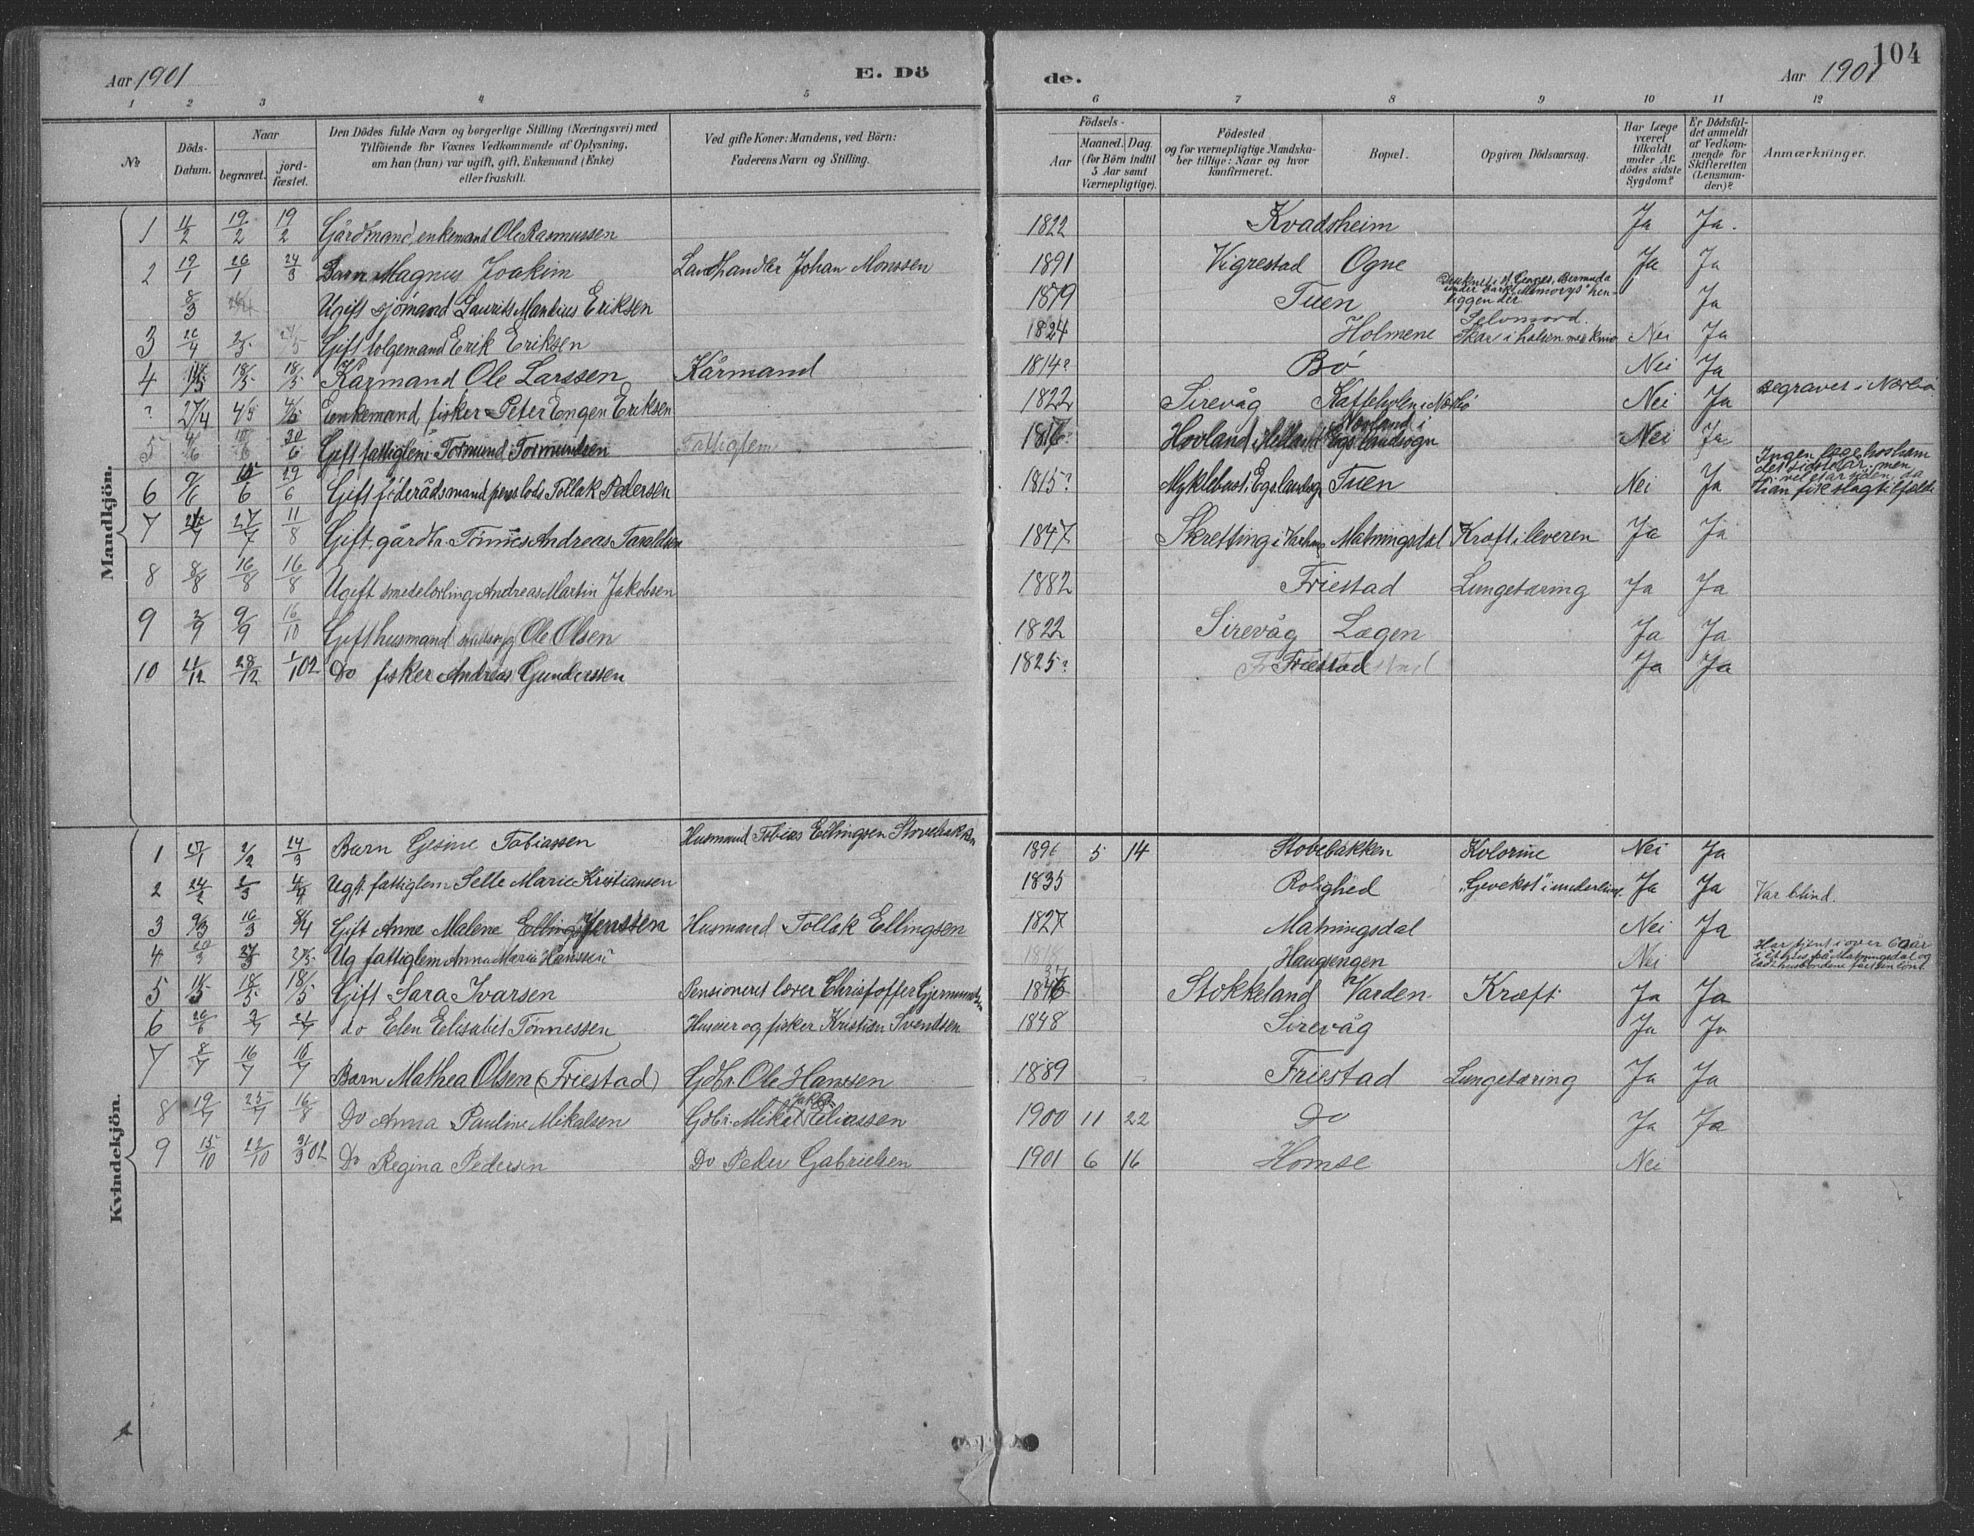 104
Aar 1901 E. Dö de. Aar 1901
1 2 3 4 5 6 7 8 9 10 11 12
No
Döds-Datum.
Naar
begravet.
jordfæstet.
Den Dödes fulde Navn og borgerlige Stilling (Næringsvei) med
Tilföiende for Voxnes Vedkommende af Oplysning,
om han (hun) var ugift, gift, Enkemand (Enke)
eller fraskilt.
Ved gifte Koner: Mandens, ved Börn:
Faderens Navn og Stilling.
Födsels-
Aar
Maaned. Dag.
(for Börn indtil
5 Aar samt
Værnepligtige).
Födested
og for værnepligtige Mandska-
ber tillige: Naar og hvor
konfirmeret.
Bopæl.
Opgiven Dödsaarsag.
Har Læge
været
tilkaldt
under Af-
dödes sidste
Sygdom?
Er Dödsfal-
det anmeldt
af Vedkom-
mende for
Skifteretten
(Lensman-
den)?
Anmærkninger.
Mandkjön.
1 4/2 19/2 19/2 Gårdmand, enkemand Ole Rasmussen 1822 Kvadsheim Ja Ja.
2 19/1 26/1 24/3 Barn Magnus Joakim Landhandler Johan Monssen 1891 Vigrestad Ogne Ja Ja
8/3 Ugift sjömand Laurits Mantius Eriksen 1879 Tuen Druknet i St. Georges, Bermuda under bark "Memorys" henliggen der Ja
3 26/4 2/5 Gift folgemand Erik Eriksen 1824 Holmene Selvmord. Skar i halsen med kniv Nei Ja
4 18/5 18/5 Kårmand Ole Larssen Kårmand 1814? Bö Nei Ja
? 27/4 4/5 4/5 Enkemand, fisker Peter Engen Eriksen 1822 Sirevåg Kaffeholen i Nærbö Nei Ja Begraves i Nærbö
5 30/6 Gift fattiglem Tormund Tormundsen Fattiglem Hovland i Helland Hovland i Egs landsogn Nei Ja
6 9/6 15/6 29/6 Gift föderådsmand pens lods Tollak Pedersen 1815? Myklebust i Egs landsogn Tuen Nei Ja Ingen læge hos ham det sidste år, men
7 27/7 11/8 Gift gårdbr. Tönnes Andreas Taraldsen 1847 Skretting i Varhaug Matningsdal Kræft i leveren Ja Ja
8 8/8 16/8 16/8 Ugift smedelærling Andreas Martin Jakobsen 1882 Friestad Lungetæring Ja Ja
9 2/9 9/9 16/10 Gift husmand Ole Olsen 1822 Sirevåg Lægen Ja Ja
10 21/12 28/12 1/1 02 Do fisker Andreas Gunderssen 1825? Friestad Ja Ja
Kvindekjön.
1 27/1 2/2 24/3 Barn Gesine Tobiassen Husmand Tobias Ellingsen Stovebakken 1896 5 14 Stovebakken Kolorine Nei Ja
2 24/2 2/3 4/4 Ugift fattiglem Selle Marie Kristiansen 1835 Rolighed "Gevekst" i underlivet. Ja Ja Var blind.
3 9/3 16/3 8/4 Gift Anne Malene Jenssen Husmand Tollak Ellingsen 1827 Matningsdal Nei Ja
4 20/3 27/3 27/5 Ug fattiglem Anna Marie Hanssen Haugsengen Nei Har tjent i over 60 år
5 11/5 18/5 18/5 Gift Sara Ivarsen Pensioneret lærer Christoffer Gjermundsen Stokkeland Varden Kræft Ja Ja
6 26/6 2/7 21/7 do Elen Elisabet Tönnessen Huseier og fisker Kristian Svendsen 1848 Sirevåg Ja Ja
7 8/7 16/7 16/7 Barn Mathea Olsen (Friestad) Gdbr. Ole Hanssen 1889 Friestad Lungetæring Ja Ja
8 19/7 25/7 16/8 Do Anna Pauline Mikalsen Gdbr. Mikal Eliassen 1900 11 22 Do Ja Ja
9 15/10 22/10 31/3 02 Do Regina Pedersen Do Peder Gabrielsen 1901 6 16 Homse Nei